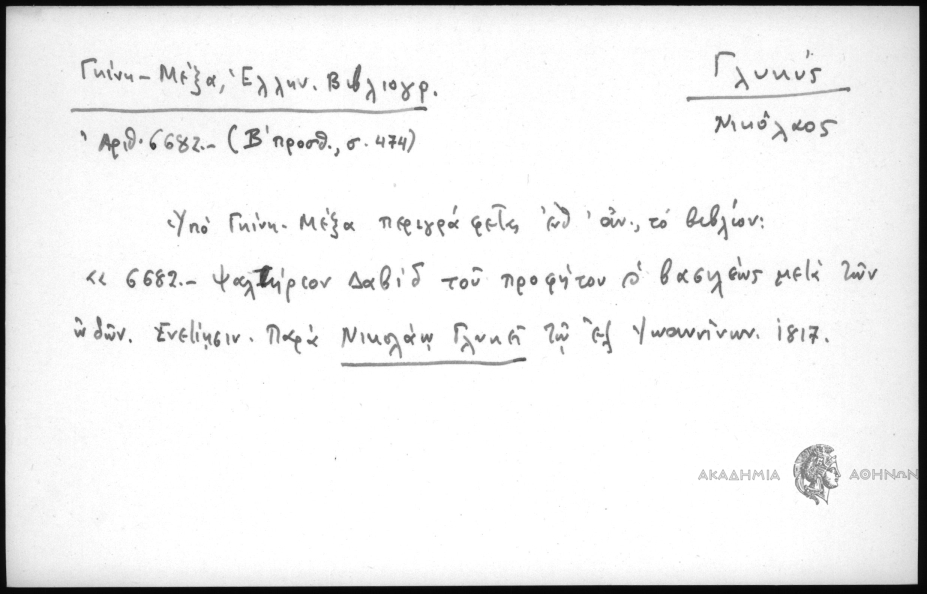 Γκίνη - Μέξα, Ἑλλην. Βιβλιογρ.
Γλυκύς
Νικόλαος
Ἀριθ. 6682.- (Β' προσθ., σ. 474)
Ὑπό Γκίνη - Μέξα περιγράφεται ἐνθ' ἀν., τό βιβλίον:
« 6682.- Ψαλτήριον Δαβίδ τοῦ προφήτου & βασιλέως μετά τῶν
ὠδῶν. Ἐνετίῃσιν. Παρά Νικολάῳ Γλυκεῖ τῷ ἐξ Ἰωαννίνων. 1817.
ΑΚΑΔΗΜΙΑ ΑΘΗΝΩΝ